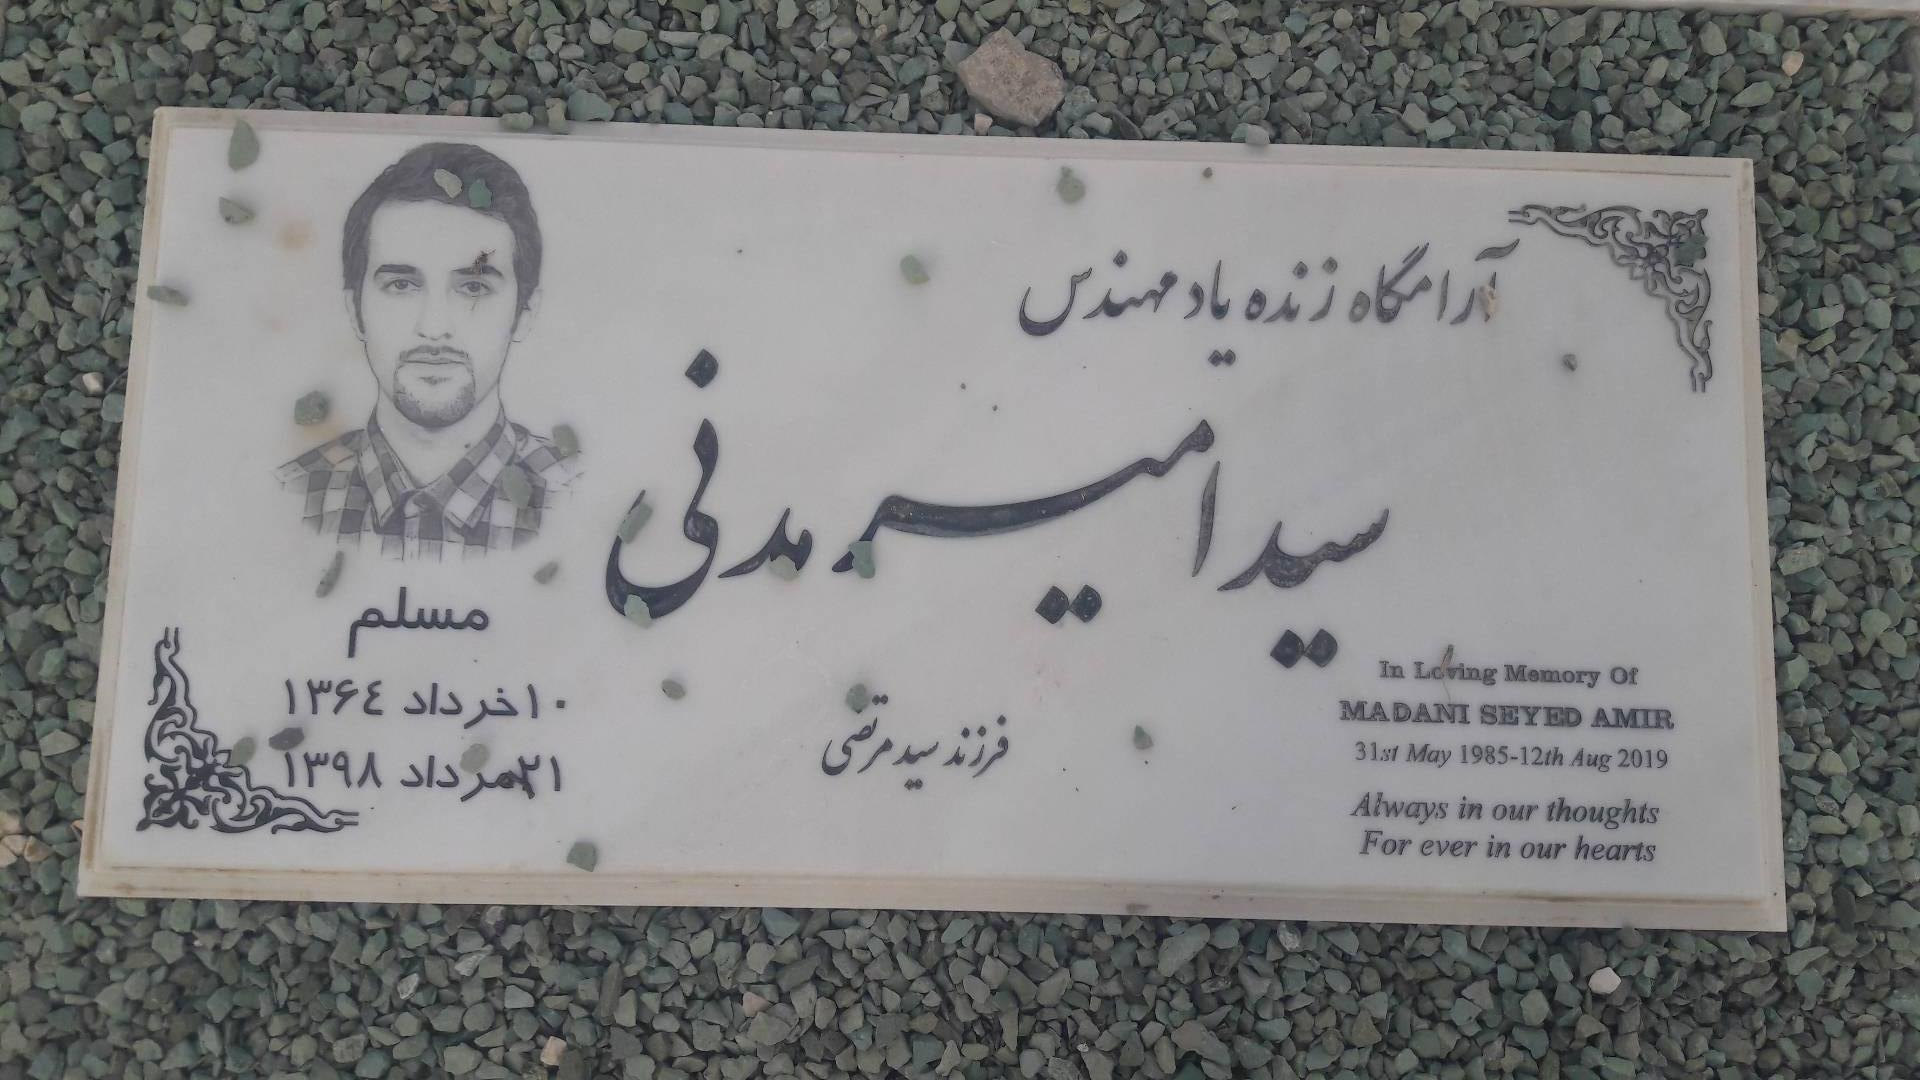 آرامگاه زنده یاد مهندس
سید امیر مدنی
فرزند سید مرتضی
مسلم
۱۰ خرداد ۱۳۶۴
۲۱ مرداد ۱۳۹۸
In Loving Memory Of
MADANI SEYED AMIR
31st May 1985-12th Aug 2019
Always in our thoughts
For ever in our hearts